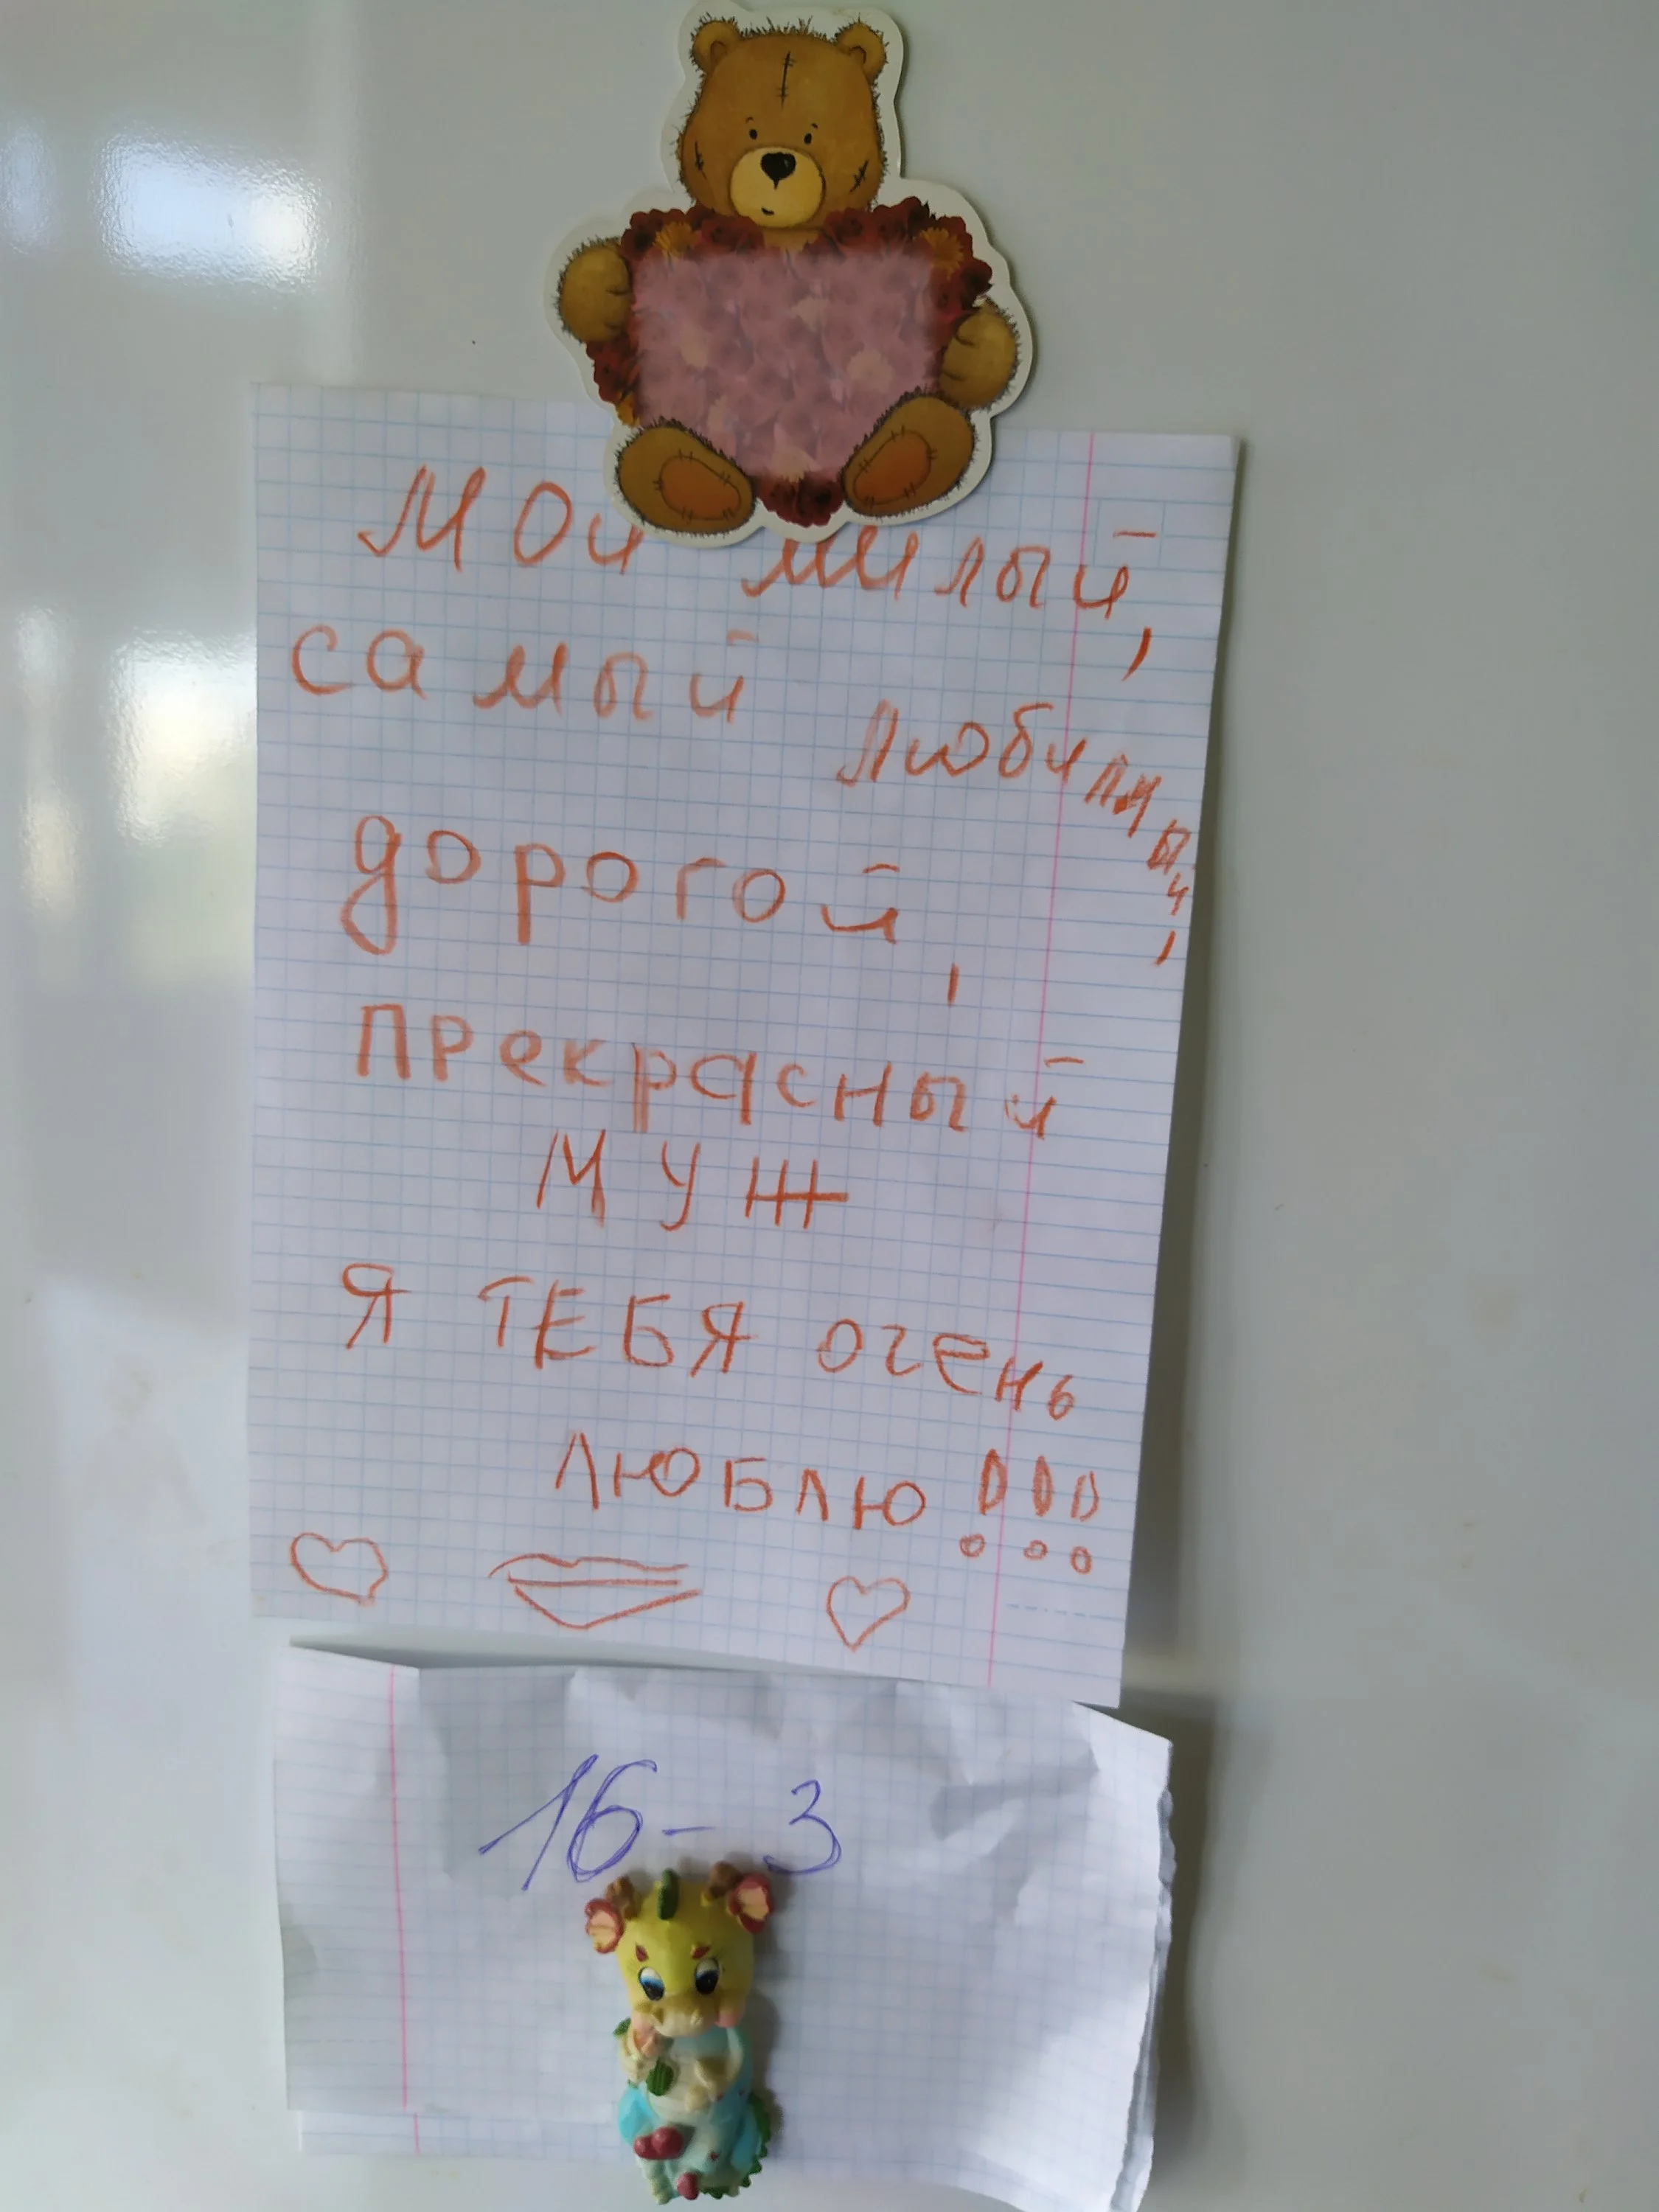 Мой милый,
самый любимый,
дорогой,
прекрасный
муж
Я ТЕБЯ очень
люблю!!!
16-3